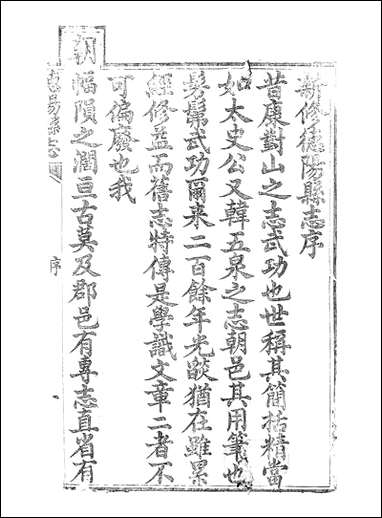 新修德陽縣志序
昔康對山之志武功也世稱其簡括精當
如太史公又韓五泉之志朝邑其用筆也
髣髴武功爾来二百餘年光燄猶在雖累
經修益而舊志特傳是學識文章二者不
可偏廢也我
朝
幅隕之濶亘古莫及郡邑有專志直省有
德陽縣志
序